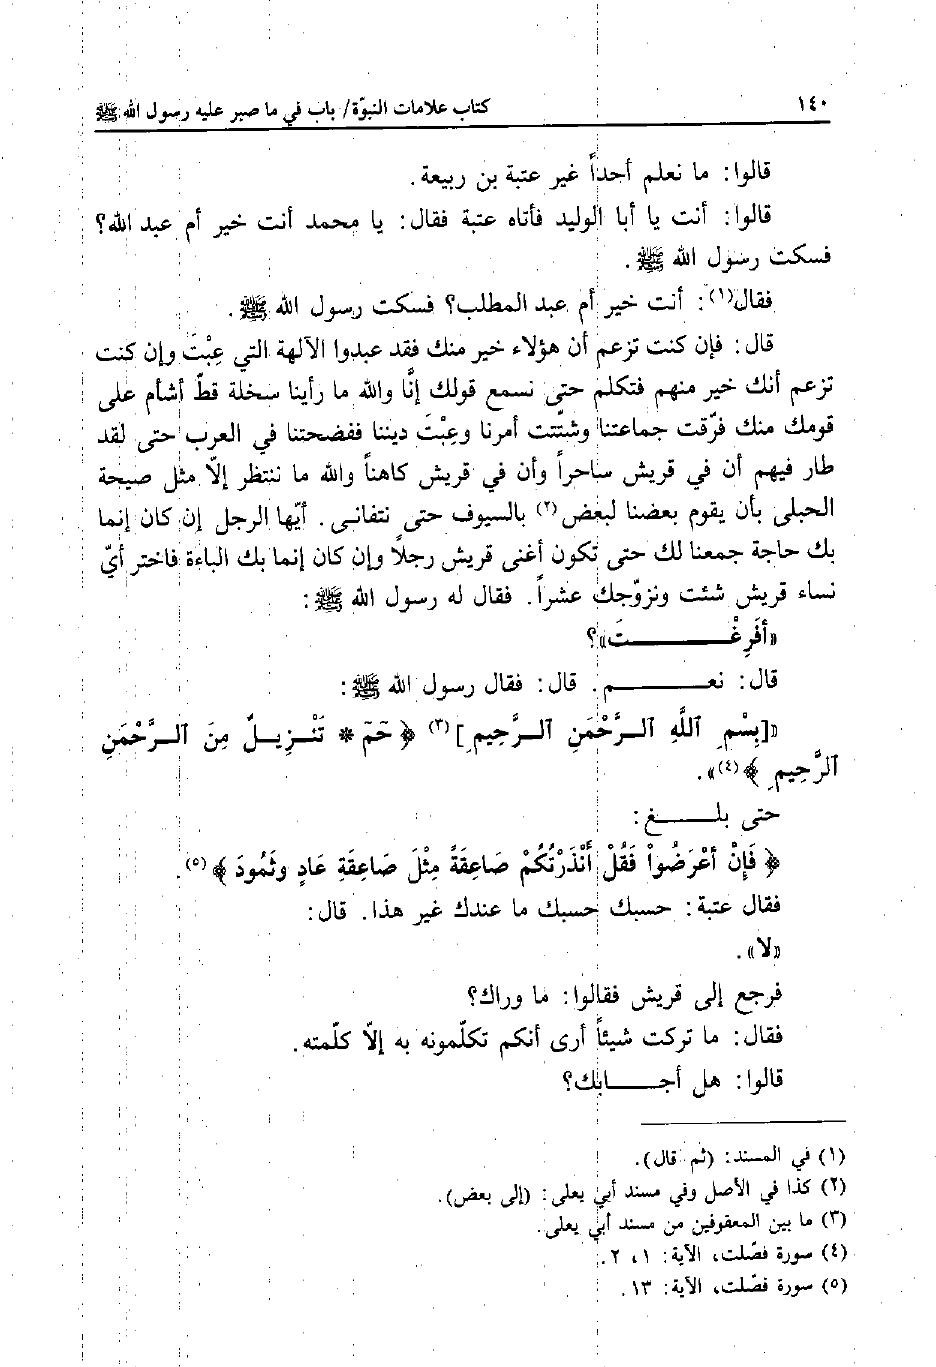 ١٤٠ كتاب علامات النبوّة/ باب في ما صبر عليه رسول الله ﷺ
قالوا: ما نعلم أحداً غير عتبة بن ربيعة.
قالوا: أنت يا أبا الوليد فأتاه عتبة فقال: يا محمد أنت خير أم عبد الله؟
فسكت رسول الله ﷺ.
فقال(١): أنت خير أم عبد المطلب؟ فسكت رسول الله ﷺ.
قال: فإن كنت تزعم أن هؤلاء خير منك فقد عبدوا الآلهة التي عِبْتَ وإن كنت
تزعم أنك خير منهم فتكلم حتى نسمع قولك إنَّا والله ما رأينا سخلة قطّ أشأم على
قومك منك فرّقت جماعتنا وشتّتت أمرنا وعِبْتَ ديننا ففضحتنا في العرب حتى لقد
طار فيهم أن في قريش ساحراً وأن في قريش كاهناً والله ما ننتظر إلاّ مثل صيحة
الحبلى بأن يقوم بعضنا لبعض(٢) بالسيوف حتى نتفانى. أيّها الرجل إن كان إنما
بك حاجة جمعنا لك حتى تكون أغنى قريش رجلاً وإن كان إنما بك الباءة فاختر أيّ
نساء قريش شئت ونزوّجك عشراً. فقال له رسول الله ﷺ:
«أفَرِغْتَ»؟
قال: نعم. قال: فقال رسول الله ﷺ:
«[بِسْمِ ٱللَّهِ ٱلرَّحْمَنِ ٱلرَّحِيمِ](٣) ﴿ حَمَ * تَنْزِيلٌ مِنَ ٱلرَّحْمَنِ
ٱلرَّحِيمِ ﴾(٤)».
حتى بلغ:
﴿ فَإِنْ أَعْرَضُواْ فَقُلْ أَنْذَرْتُكُمْ صَاعِقَةً مِثْلَ صَاعِقَةِ عَادٍ وثَمُودَ ﴾(٥).
فقال عتبة: حسبك حسبك ما عندك غير هذا. قال:
«لا».
فرجع إلى قريش فقالوا: ما وراك؟
فقال: ما تركت شيئاً أرى أنكم تكلّمونه به إلاّ كلّمته.
قالوا: هل أجابك؟
(١) في المسند: (ثم قال).
(٢) كذا في الأصل وفي مسند أبي يعلى: (إلى بعض).
(٣) ما بين المعقوفين من مسند أبي يعلى.
(٤) سورة فصّلت، الآية: ١، ٢.
(٥) سورة فصّلت، الآية: ١٣.